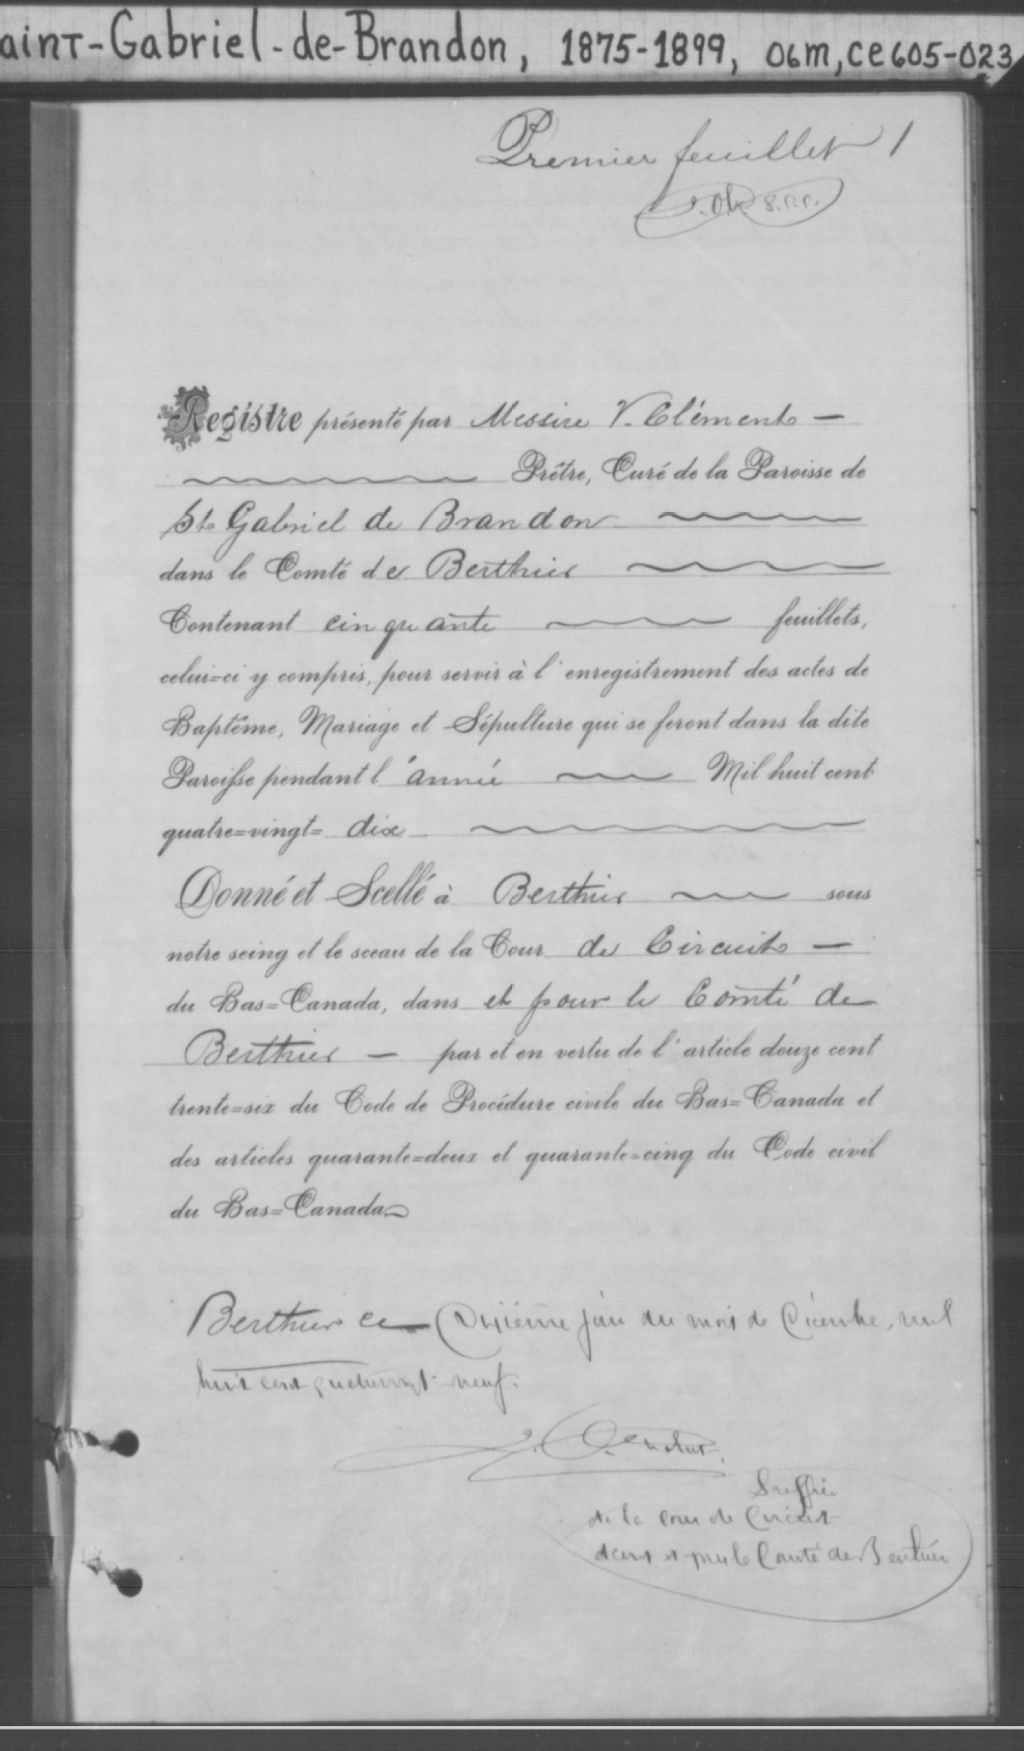 aint-Gabriel-de-Brandon, 1875-1899, 06m, ce605-023
Premier feuillet 1
Registre présenté par Messire V. Clément —
Prêtre, Curé de la Paroisse de
St Gabriel de Brandon
dans le Comté de Berthier
Contenant cinquante feuillets,
celui=ci y compris, pour servir à l'enregistrement des actes de
Baptême, Mariage et Sépulture qui se feront dans la dite
Paroisse pendant l'année Mil huit cent
quatre=vingt= dix
Donné et Scellé à Berthier sous
notre seing et le sceau de la Cour de Circuit —
du Bas=Canada, dans et pour le Comté de
Berthier — par et en vertu de l'article douze cent
trente=six du Code de Procédure civile du Bas=Canada et
des articles quarante=deux et quarante=cinq du Code civil
du Bas=Canada
Berthier ce jour du mois de Décembre, mil
huit cent quatrevingt-neuf.
Greffier
de la cour de Circuit
dans et pour le Comté de Berthier